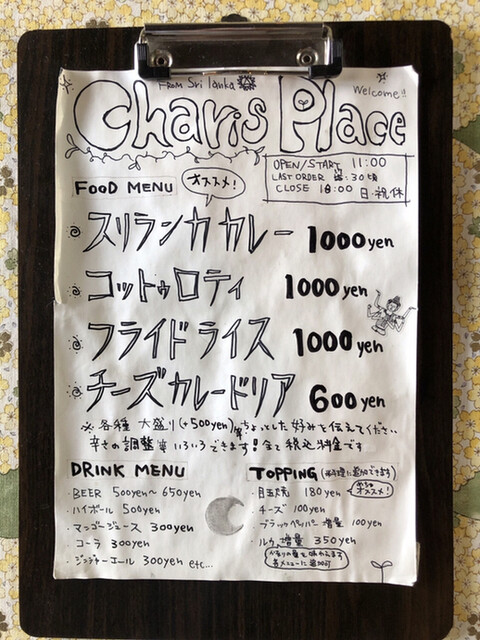 FROM Sri lanka
Welcome!!
Charis Place
OPEN/START 11:00
LAST ORDER :30頃
CLOSE 18:00 日・祝休
FOOD MENU
オススメ!
スリランカカレー 1000yen
コットゥロティ 1000yen
フライドライス 1000yen
チーズカレードリア 600yen
※各種 大盛り(+500yen)等ちょっとした好みを伝えてください
辛さの調整等いろいろできます!全て税込料金です
DRINK MENU
・BEER 500yen~650yen
・ハイボール 500yen
・マンゴージュース 300yen
・コーラ 300yen
・ジンジャーエール 300yen etc...
TOPPING (料理に追加できます)
・目玉焼 180yen
オススメ!
・チーズ 100yen
・ブラックペッパー増量 100yen
・ルウ増量 350yen
各メニューに追加可